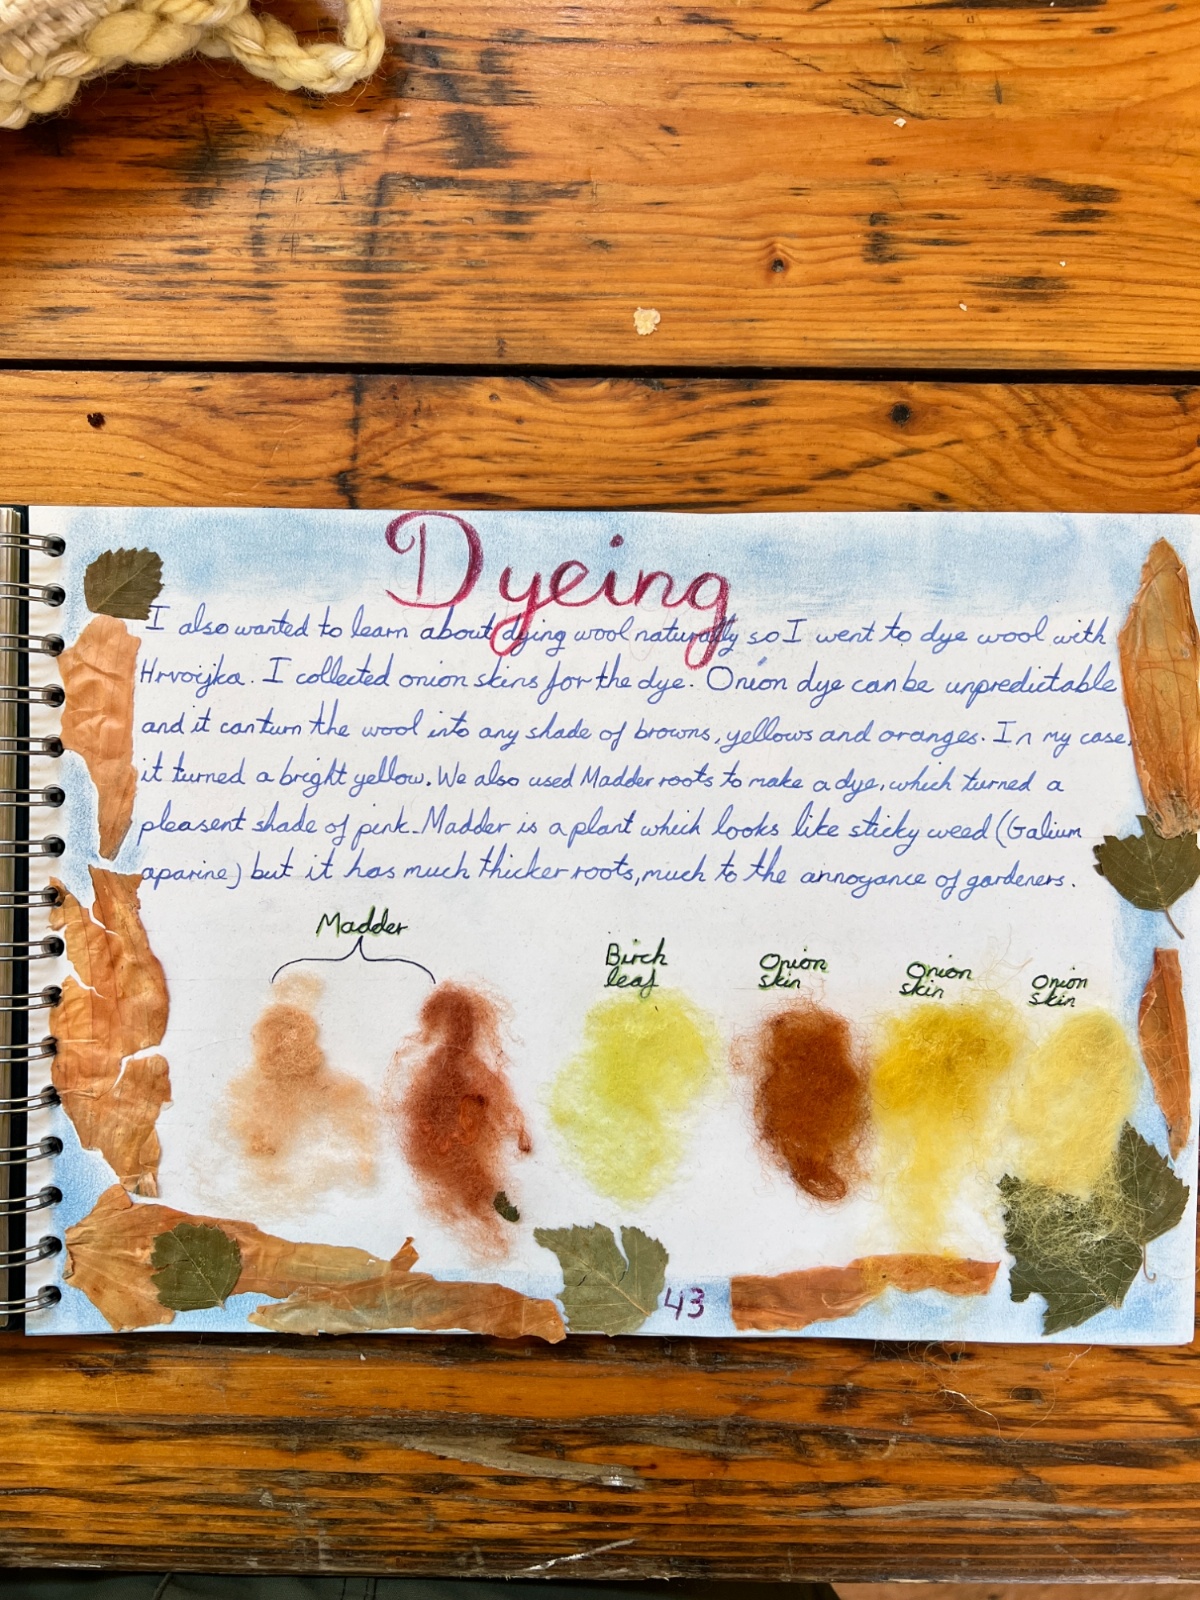 Dyeing
I also wanted to learn about dying wool naturally so I went to dye wool with
Hrvoijka. I collected onion skins for the dye. Onion dye can be unpredictable
and it can turn the wool into any shade of browns, yellows and oranges. In my case,
it turned a bright yellow. We also used Madder roots to make a dye, which turned a
pleasent shade of pink. Madder is a plant which looks like sticky weed (Galium
aparine) but it has much thicker roots, much to the annoyance of gardeners.
Madder
Birch
leaf
Onion
skin
Onion
skin
Onion
skin
43